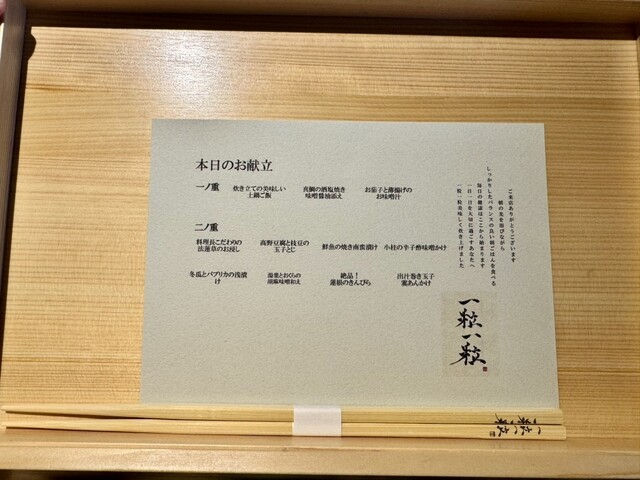 本日のお献立
一ノ重
炊き立ての美味しい
土鍋ご飯
真鯛の酒塩焼き
味噌醤油添え
お茄子と薄揚げの
お味噌汁
二ノ重
料理長こだわりの
法蓮草のお浸し
高野豆腐と枝豆の
玉子とじ
鮮魚の焼き南蛮漬け
小柱の辛子酢味噌かけ
冬瓜とパプリカの浅漬
け
湯葉とおくらの
胡麻味噌和え
絶品！
蓮根のきんぴら
出汁巻き玉子
葱あんかけ
ご来店ありがとうございます
朝の光を浴びながら
しっかりしたバランスの良い朝ごはんを食べる
毎日の健康はここから始まります
一日一日を大切に過ごすあなたへ
一粒一粒美味しく炊き上げました
一粒一粒